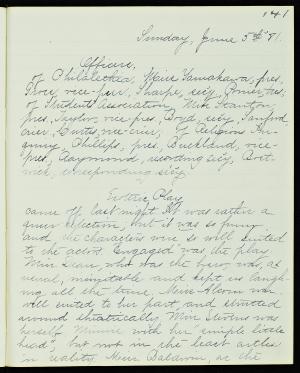 141
Sunday, June 5th 81.
Officers,
of Philalethea, Miss Yamakawa, pres,
vice-pres, Sharpe, sec'y,
of Students' Association, Miss Stanton,
pres, Taylor, vice pres, Boyd, sec'y, Sanford,
Curtis, vice of Religious
Phillips, pres, Buckland, vice-
pres, Raymond, recording sec'y,
corresponding sec'y.
Play
came off last night. It was rather a
queer selection, but it was so funny
and the characters were so well suited
to the actors. "Engaged" was the play.
Miss Dean, who was the hero was, as
usual, inimitable and kept us laugh-
ing all the time. Miss was
well suited to her part, and strutted
around theatrically. Miss Stevens was
herself. Minnie with her "simple little
head", but not in the least artless
in reality. Miss Baldwin, as the